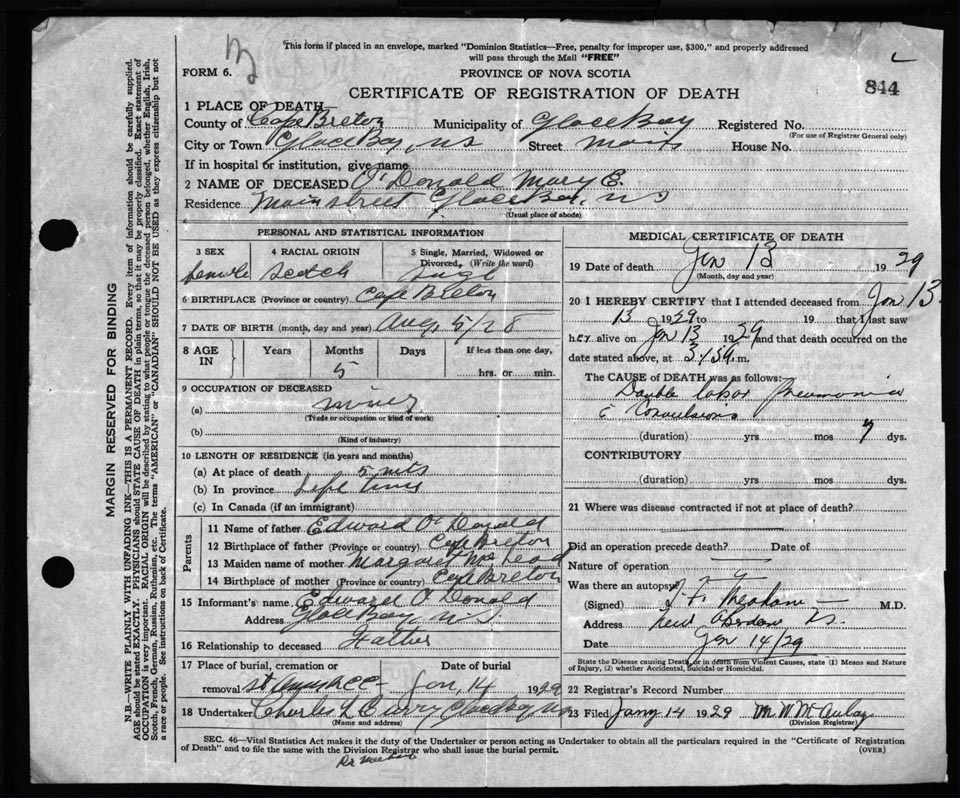 This form if placed in an envelope, marked "Dominion Statistics—Free, penalty for improper use, $300," and properly addressed
will pass through the Mail "FREE"
FORM 6.
PROVINCE OF NOVA SCOTIA
844
CERTIFICATE OF REGISTRATION OF DEATH
1 PLACE OF DEATH—
County of Cape Breton Municipality of Glace Bay Registered No.
(For use of Registrar General only)
City or Town Glace Bay, NS Street Main House No.
If in hospital or institution, give name
2 NAME OF DECEASED O'Donald Mary E.
Residence Main street Glace Bay, NS
(Usual place of abode)
PERSONAL AND STATISTICAL INFORMATION
3 SEX 4 RACIAL ORIGIN 5 Single, Married, Widowed or
Divorced, (Write the word)
female Scotch Singl
6 BIRTHPLACE (Province or country) Cape Breton
7 DATE OF BIRTH (month, day and year) Aug 5/28
8 AGE IN Years Months Days If less than one day,
5 hrs. or min.
9 OCCUPATION OF DECEASED
(a)
(Trade or occupation or kind of work)
(b)
(Kind of industry)
10 LENGTH OF RESIDENCE (in years and months)
(a) At place of death 5 mts
(b) In province Life time
(c) In Canada (if an immigrant)
Parents
11 Name of father Edward O'Donald
12 Birthplace of father (Province or country) Cape Breton
13 Maiden name of mother Margaret McLeod
14 Birthplace of mother (Province or country) Cape Breton
15 Informant's name Edward O'Donald
Address Glace Bay NS
16 Relationship to deceased Father
17 Place of burial, cremation or Date of burial
removal Jan, 14 1929
18 Undertaker Charles L Curry Glace Bay NS
(Name and address)
MEDICAL CERTIFICATE OF DEATH
19 Date of death Jan 13 1929
(Month, day and year)
20 I HEREBY CERTIFY that I attended deceased from Jan 13
13 1929 to 19 that I last saw
her alive on Jan 13 1929 and that death occurred on the
date stated above, at m.
The CAUSE of DEATH was as follows:
Double lobar Pneumonia
c̄ Convulsions
(duration) yrs mos dys.
CONTRIBUTORY
(duration) yrs mos dys.
21 Where was disease contracted if not at place of death?
Did an operation precede death? Date of
Nature of operation
Was there an autopsy
(Signed) M.D.
Address New Aberdeen NS.
Date Jan 14/29
State the Disease causing Death, or in death from Violent Causes, state (1) Means and Nature
of Injury, (2) whether Accidental, Suicidal or Homicidal.
22 Registrar's Record Number
23 Filed Jany 14 1929 M W McAulay
(Division Registrar)
SEC. 46—Vital Statistics Act makes it the duty of the Undertaker or person acting as Undertaker to obtain all the particulars required in the "Certificate of Registration
of Death" and to file the same with the Division Registrar who shall issue the burial permit.
(OVER)
MARGIN RESERVED FOR BINDING
N.B.—WRITE PLAINLY WITH UNFADING INK—THIS IS A PERMANENT RECORD. Every item of information should be carefully supplied.
AGE should be stated EXACTLY. PHYSICIANS should STATE CAUSE OF DEATH in plain terms, so that it may be properly classified. Exact statement of
OCCUPATION is very important. RACIAL ORIGIN will be described by stating to what people or tongue the deceased person belonged, whether English, Irish,
Scotch, French, German, Russian, Ruthenian, etc. The terms "AMERICAN" or "CANADIAN" SHOULD NOT BE USED as they express citizenship but not
a race or people. See instructions on back of Certificate.